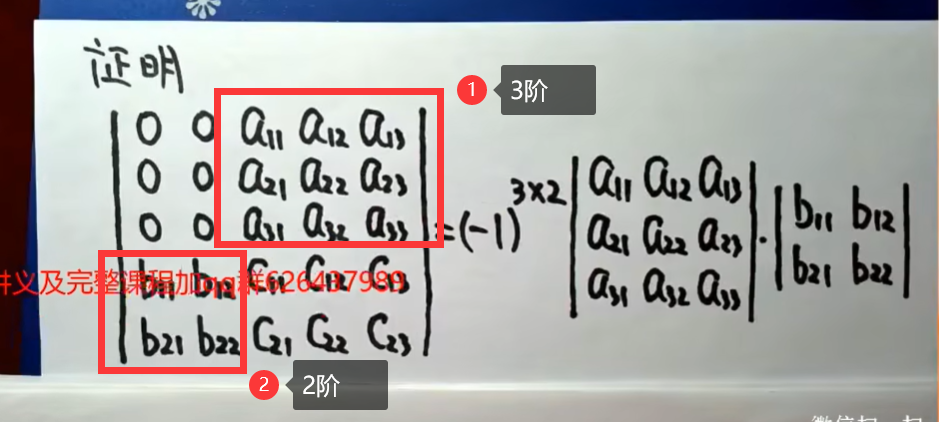 证明
1 3阶
0 0 a11 a12 a13
0 0 a21 a22 a23
0 0 a31 a32 a33
b11 b12 c11 c12 c13
b21 b22 c21 c22 c23
=(-1)3×2
a11 a12 a13
a21 a22 a23
a31 a32 a33
·
b11 b12
b21 b22
讲义及完整课程加qq群626437989
2 2阶
微信扫一扫